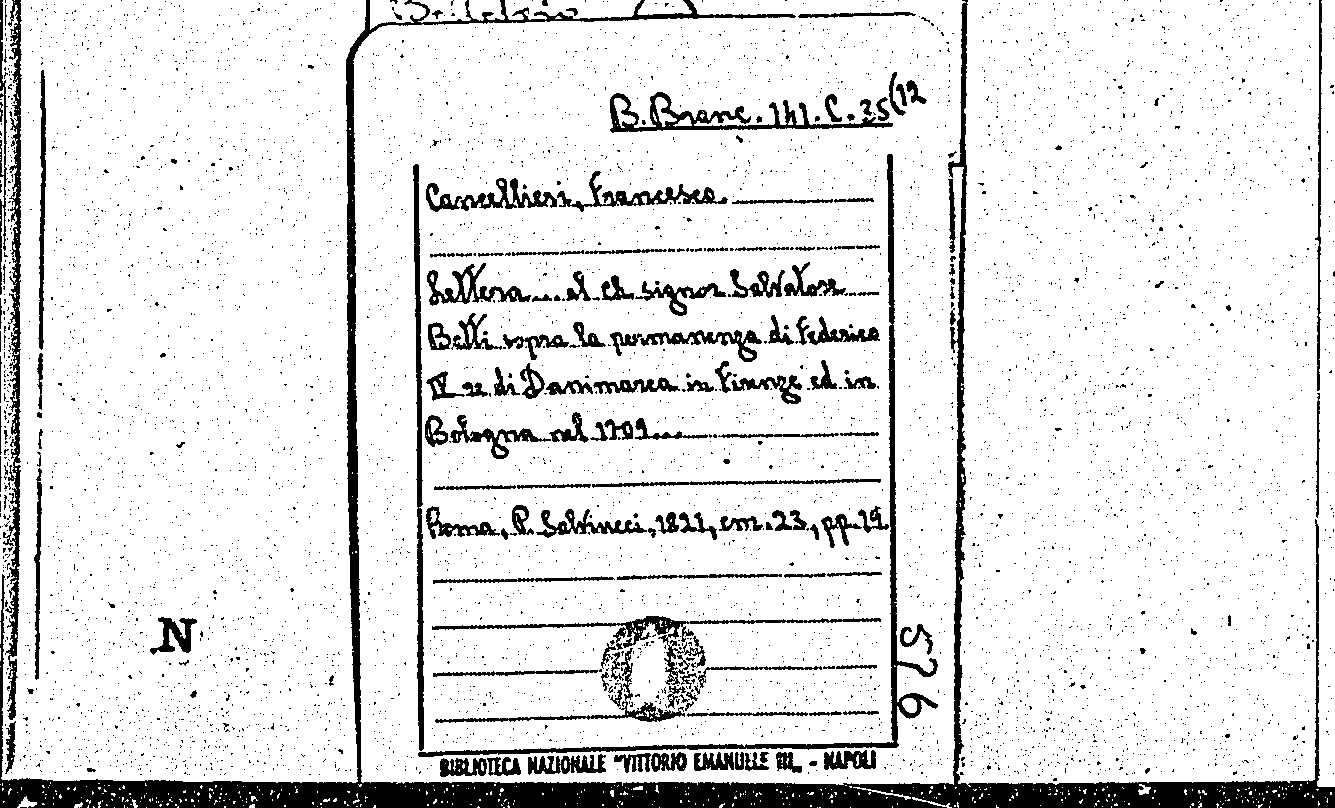 B. Branc. 141. C. 35(12
Cancellieri, Francesco.
Lettera... al ch. signor Salvatore
Betti sopra la permanenza di Federico
IV re di Danimarca in Firenze ed in
Bologna nel 1709...
Roma, P. Salvincci, 1821, cm. 23, pp. 19.
N
576
BIBLIOTECA NAZIONALE "VITTORIO EMANUELE III„ - NAPOLI